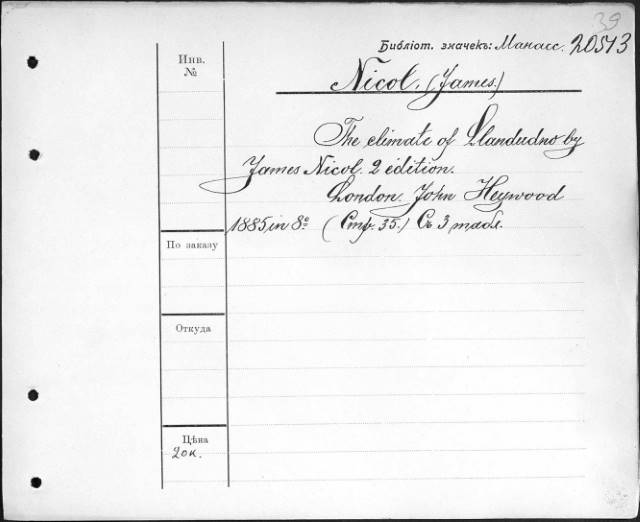 39
Библіот. значекъ: Манасс. 20513
Инв.
№
Nicol. (James.)
The climate of Llandudno by
James Nicol. 2 edition.
London. John Heywood
1885 in 8º (Стр. 35.) Съ 3 табл.
По заказу
Откуда
Цѣна
20к.